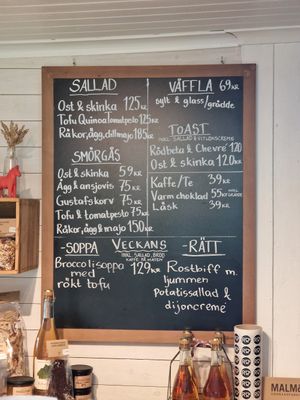 SALLAD
Ost & skinka 125 kr
Tofu Quinoa/tomatpesto 125 kr
Räkor, ägg, dillmajo 185 kr
SMÖRGÅS
Ost & skinka 59 kr
Ägg & ansjovis 75 kr
Gustafskorv 75 kr
Tofu & tomatpesto 75 kr
Räkor, ägg & majo 150 kr
VÄFFLA 69 kr
sylt & glass/grädde
TOAST
INKL SALLAD & VITLÖKSCREME
Rödbeta & Chevré 120
Ost & skinka 120 kr
Kaffe/Te 39 kr
Varm choklad 55 kr INKL GRÄDDE
Läsk 39 kr
VECKANS
INKL SALLAD, BRÖD
KAFFE PÅ MATEN
-SOPPA
Broccolisoppa
med
rökt tofu
129 kr
-RÄTT
Rostbiff m.
ljummen
potatissallad &
dijoncremé
MALMÖ